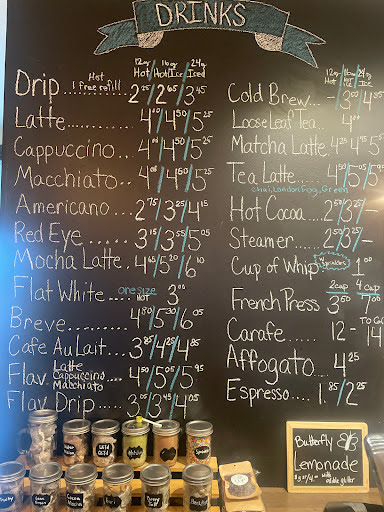 DRINKS
12oz 16oz 24oz
Hot Hot/Ice Iced
Drip Hot 1 free refill 2.25/2.65/3.45
Latte 4.00/4.50/5.25
Cappuccino 4.00/4.50/5.25
Macchiato 4.00/4.50/5.25
Americano 2.75/3.25/4.15
Red Eye 3.15/3.55/5.05
Mocha Latte 4.65/5.20/6.10
Flat White one size HOT 3.00
Breve 4.80/5.30/6.05
Cafe Au Lait 3.85/4.25/4.85
Flav. Latte Cappuccino Macchiato 4.50/5.05/5.95
Flav Drip 3.05/3.45/4.05
Cold Brew - /3.00/4.05
Loose Leaf Tea 4.00
Matcha Latte 4.25
Tea Latte 4.50/5.05/5.95
Chai, London Fog, Green
Hot Cocoa 2.50/3.25/-
Steamer 2.50/3.25/-
Cup of Whip Sprinkles 1.00
2 cup 4 cup
French Press 3.50 7.00
Carafe 12 - TO GO 14
Affogato 4.25
Espresso 1.85/2.25
Butterfly
Lemonade
with
edible glitter